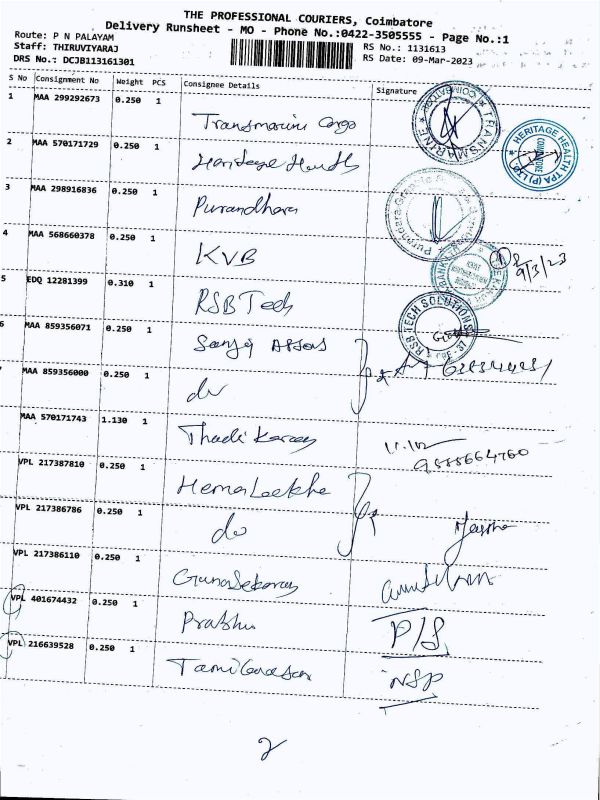 THE PROFESSIONAL COURIERS, Coimbatore
Delivery Runsheet - MO - Phone No.:0422-3505555 - Page No.:1
Route: P N PALAYAM
RS No.: 1131613
Staff: THIRUVIYARAJ
RS Date: 09-Mar-2023
DRS No.: DCJB113161301
S No Consignment No Weight PCS Consignee Details Signature
1 MAA 299292673 0.250 1
Transmarine Cargo
TRANSMARINE COIMBATORE
2 MAA 570171729 0.250 1
Heritage Health
HERITAGE HEALTH TPA (P) LTD COIMBATORE
3 MAA 298916836 0.250 1
Purandhara
4 MAA 568660378 0.250 1
KVB
9/3/23
5 EDQ 12281399 0.310 1
RSB Tech
RSB TECH SOLUTIONS
6 MAA 859356071 0.250 1
Sanjay
MAA 859356000 0.250 1
do
MAA 570171743 1.130 1
VPL 217387810 0.250 1
Hemaleekha
VPL 217386786 0.250 1
do
VPL 217386110 0.250 1
Gunasekaran
VPL 401674432 0.250 1
Prabhu
P/S
VPL 216639528 0.250 1
Tamilarasan
NSP
2